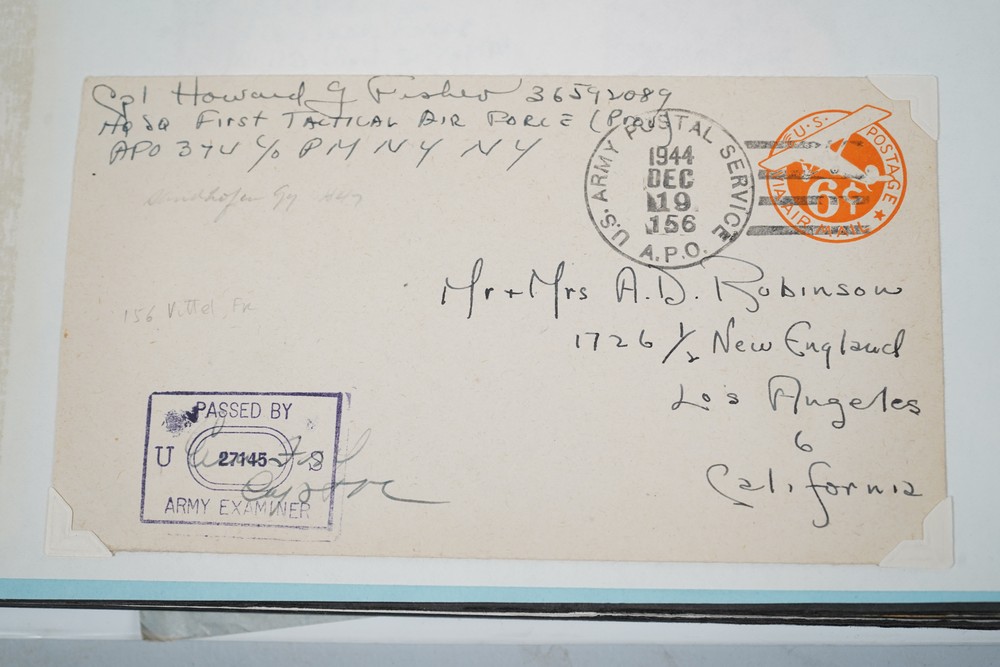 Cpl Howard G Fisher 36592089
Hq Sq First Tactical Air Force (Prov)
APO 374 c/o PM NY NY
U.S. ARMY POSTAL SERVICE
1944
DEC
19
156
A.P.O.
U.S. POSTAGE
6¢
VIA AIR MAIL
156 Vittel, Fr
Mr + Mrs A.D. Robinson
1726 1/2 New England
Los Angeles
6
California
PASSED BY
U 27145 S
ARMY EXAMINER